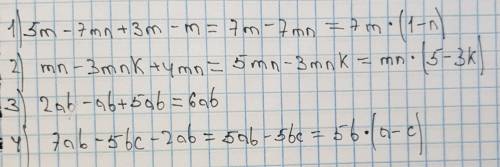 1) 5m - 7mn + 3m - m = 7m - 7mn = 7m · (1-n)
2) mn - 3mnk + 4mn = 5mn - 3mnk = mn · (5 - 3k)
3) 2ab - ab + 5ab = 6ab
4) 7ab - 5bc - 2ab = 5ab - 5bc = 5b · (a - c)